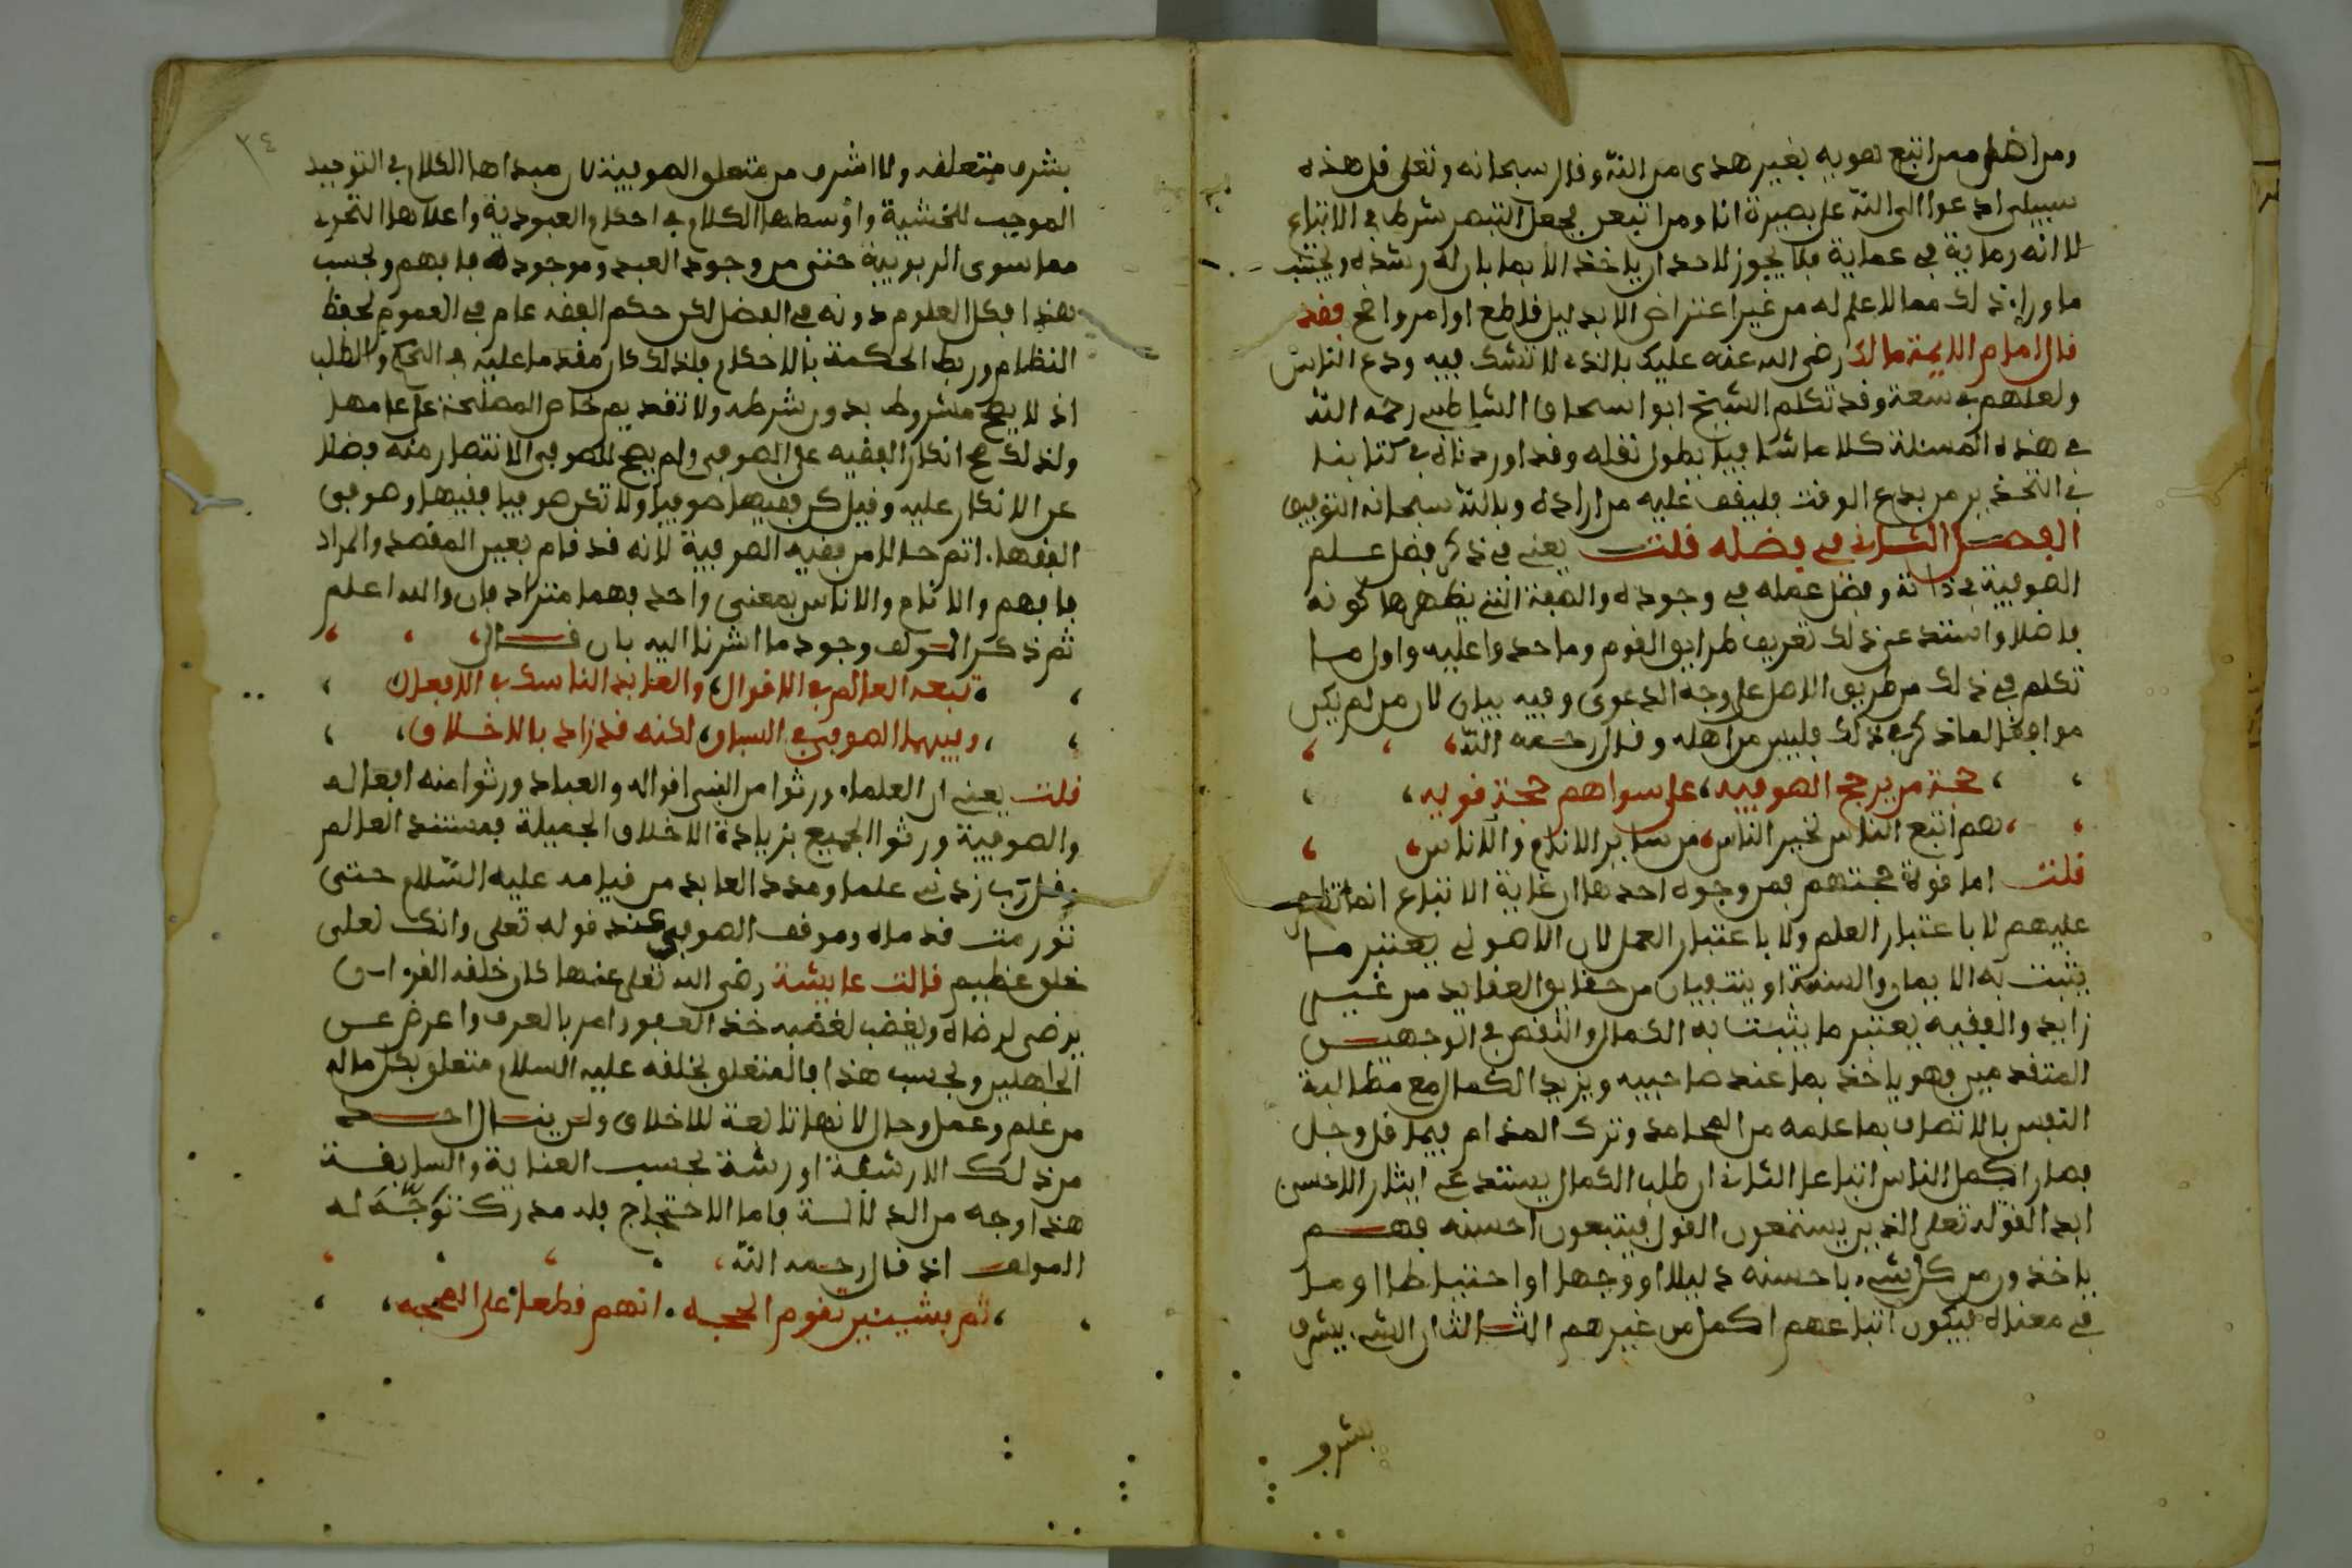 ومن اضل ممن اتبع هويه بغير هدى من الله وفال سبحانه وتعلى فل هذه
سبيلى ادعوا الى الله على بصيرة انا ومن اتبعن فجعل التبصر شرطا في الاتباع
لا انه رماية في عماية فلا يجوز لاحد ان ياخذ الا بما بان له رشده ويجتنب
ما وراء ذلك مما لا علم له من غير اعتراض الا بدليل فاطع او امر واضح ففد
فال امام الايمة مالك رضى الله عنه عليك بالذي لا تشك فيه ودع الناس
ولعلهم في سعة وفد تكلم الشيخ ابو اسحاق الشاطبي رحمه الله
في هذه المسئلة كلاما شافيا يطول نفله وفد اوردناه في كتابنا
في التحذير من بدع الوفت فليفف عليه من اراده وبالله سبحانه التوفيق
الفصل الثاني في فضله فلت يعني في ذكر فضل علم
الصوفية في ذاته وفضل عمله في وجوده والصفة التي يظهر بها كونه
فاضلا واستدعى ذلك تعريف طرايق الفوم وما حدوا عليه واول ما
تكلم في ذلك من طريق الاصل على وجه الدعوى وفيه بيان لان من لم يكن
موافقا لما ذكر في ذلك فليس من اهله وفال رحمه الله
حجة من يرجح الصوفيه، على سواهم حجة فويه،
هم اتبع الناس لخير الناس، من ساير الانام والاناس
فلت اما فوة حجتهم فمن وجوه احدها ان غاية الاتباع انما تظهر
عليهم لا باعتبار العلم ولا باعتبار العمل لان الاصولي يعتبر ما
يثبت به الايمان والسنة او ينتفيان من حفايق العفايد من غير
زايد والففيه يعتبر ما يثبت به الكمال والنفص في الوجهين
المتفدمين فهو ياخذ بما عند صاحبيه ويزيد الكمال مع مطالبة
النفس بالاتصاف بما علمه من المحامد وترك المذام فيما فل وجل
فصار اكمل الناس اتباعا الثاني ان طلب الكمال يستدعي ايثار الاحسن
ابدا لفوله تعلى الذين يستمعون الفول فيتبعون احسنه فهم
ياخذون من كل شيء باحسنه دليلا او وجها او احتياطا او ما
في معناه فيكون اتباعهم اكمل من غيرهم الثالث ان الشيء يشرف
بشرف
٣٤
بشرف متعلفه ولا اشرف من متعلق الصوفية لان مبداها الكلام في التوحيد
الموجب للخشية واوسطها الكلام في احكام العبودية واعلاها التحري
مما سوى الربوبية حتى من وجود العبد وموجوده فافهم وبحسب
هذا فكل العلوم دونه في الفضل لكن حكم الففه عام في العموم لحفظ
النظام وربط الحكمة بالاحكام فلذلك كان مفدما عليه في الحكم والطلب
اذ لا يصح مشروط بدون شرطه ولا تفديم خاص المصلحة على عامها
ولذلك صح انكار الففيه على الصوفي ولم يصح للصوفي الانتصار منه فضلا
عن الانكار عليه وفيل كن ففيها صوفيا ولا تكن صوفيا ففيها وصوفي
الففهاء اتم حالا من ففيه الصوفية لانه فد فام بعين المفصد والمراد
فافهم والانام والاناس بمعنى واحد فهما مترادفان والله اعلم
ثم ذكر المولف وجود ما اشرنا اليه بان فال
تبعه العالم في الافوال، والعابد الناسك في الافعال
وفيهما الصوفي في السباق، لكنه فد زاد بالاخلاق،
فلت يعني ان العلماء ورثوا من النبي افواله والعباد ورثوا منه افعاله
والصوفية ورثوا الجميع بزيادة الاخلاق الجميلة فمستند العالم
وفل رب زدني علما ومدد العابد من فيامه عليه السلام حتى
تورمت فدماه وموفف الصوفي عند فوله تعلى وانك لعلى
خلق عظيم فالت عايشة رضى الله تعلى عنها كان خلفه الفرءان
يرضى لرضاه ويغضب لغضبه خذ العفو وامر بالعرف واعرض عن
الجاهلين وبحسب هذا فالمتخلق بخلفه عليه السلام متعلق بكل ماله
من علم وعمل وحال لانها تابعة للاخلاق ولن ينال احد
من ذلك الا رشفة او رشة بحسب العناية والسابفة
هذا وجه من الدلالة فاما الاحتجاج فله مدرك توجه له
المولف اذ فال رحمه الله،
ثم بشيئين تفوم الحجه. انهم فطعا على المحجه،